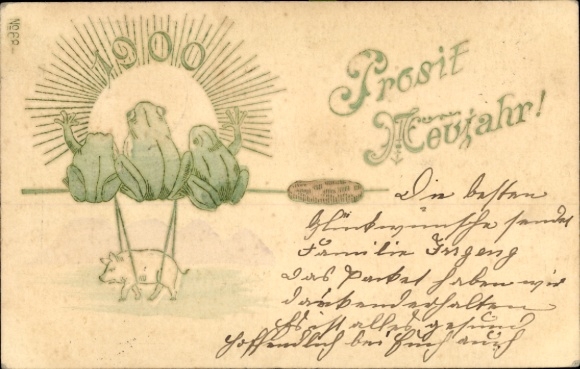 No 69
1900
Prosit
Neujahr!
Die besten
Glückwünsche sendet
Familie Irrgeng
Das Packet haben wir
dankend erhalten
Es ist alles gesund
hoffendlich bei Euch auch